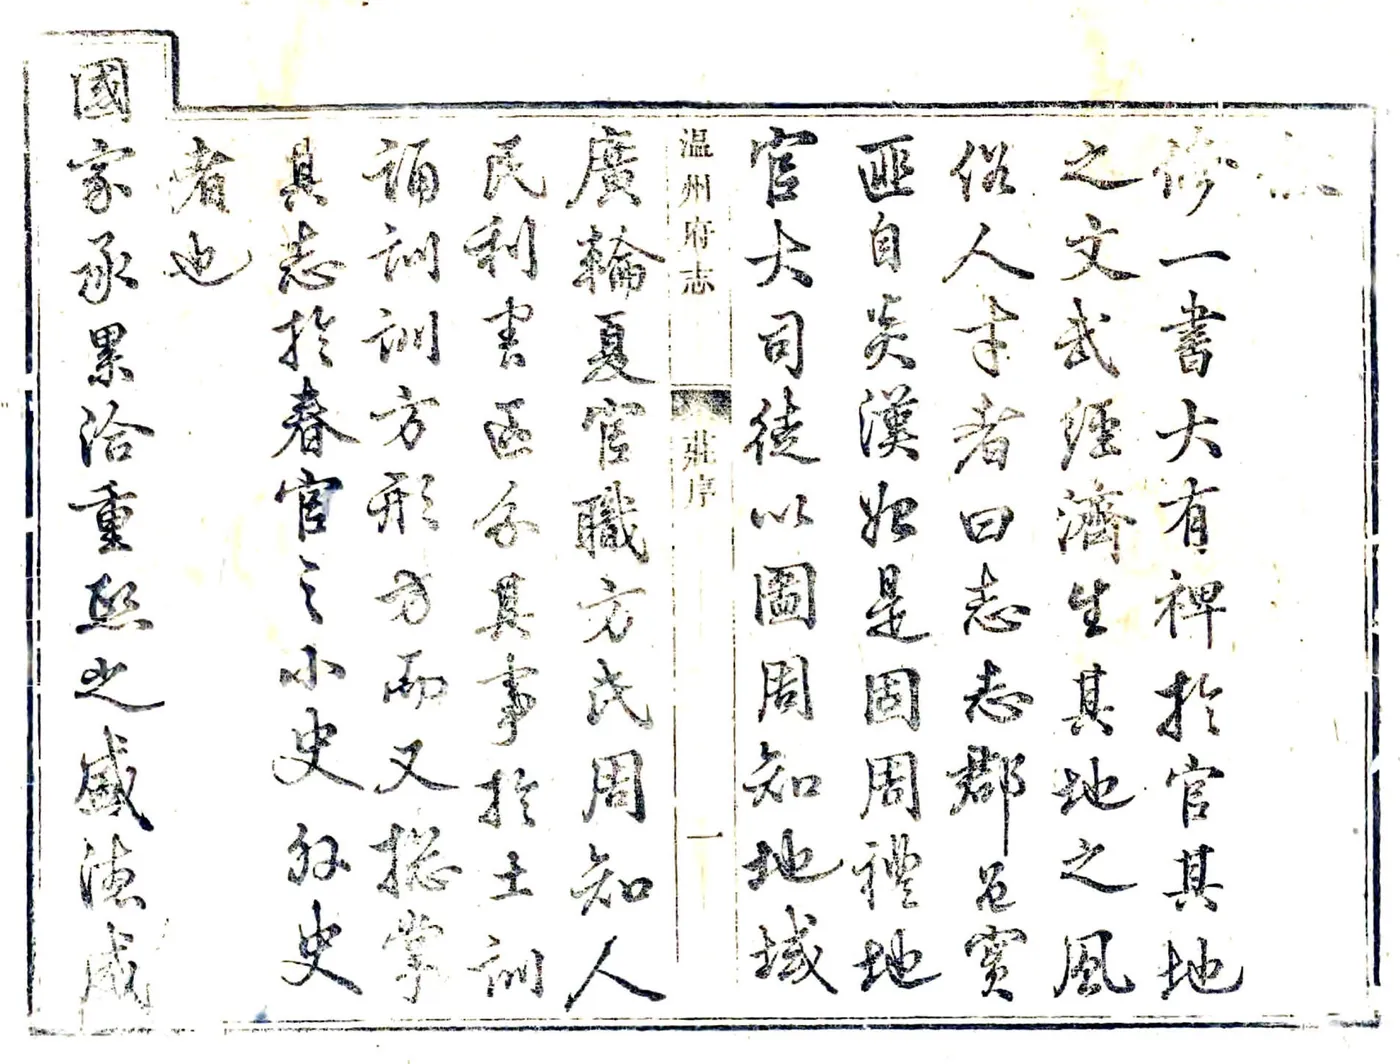 修一書大有裨於官其地
之文武經濟生其地之風
俗人才者曰志志郡邑實
匪自炎漢始是固周禮地
官大司徒以圖周知地域
温州府志
莊序
一
廣輪夏官職方氏周知人
民利害函分其事於土訓
誦訓訓方形方而又總掌
其志於春官之小史外史
者也
國家承累洽重熙之盛德威